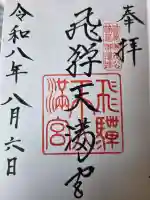 奉拝
飛騨天満宮
飛騨
天満宮
令和八年八月六日